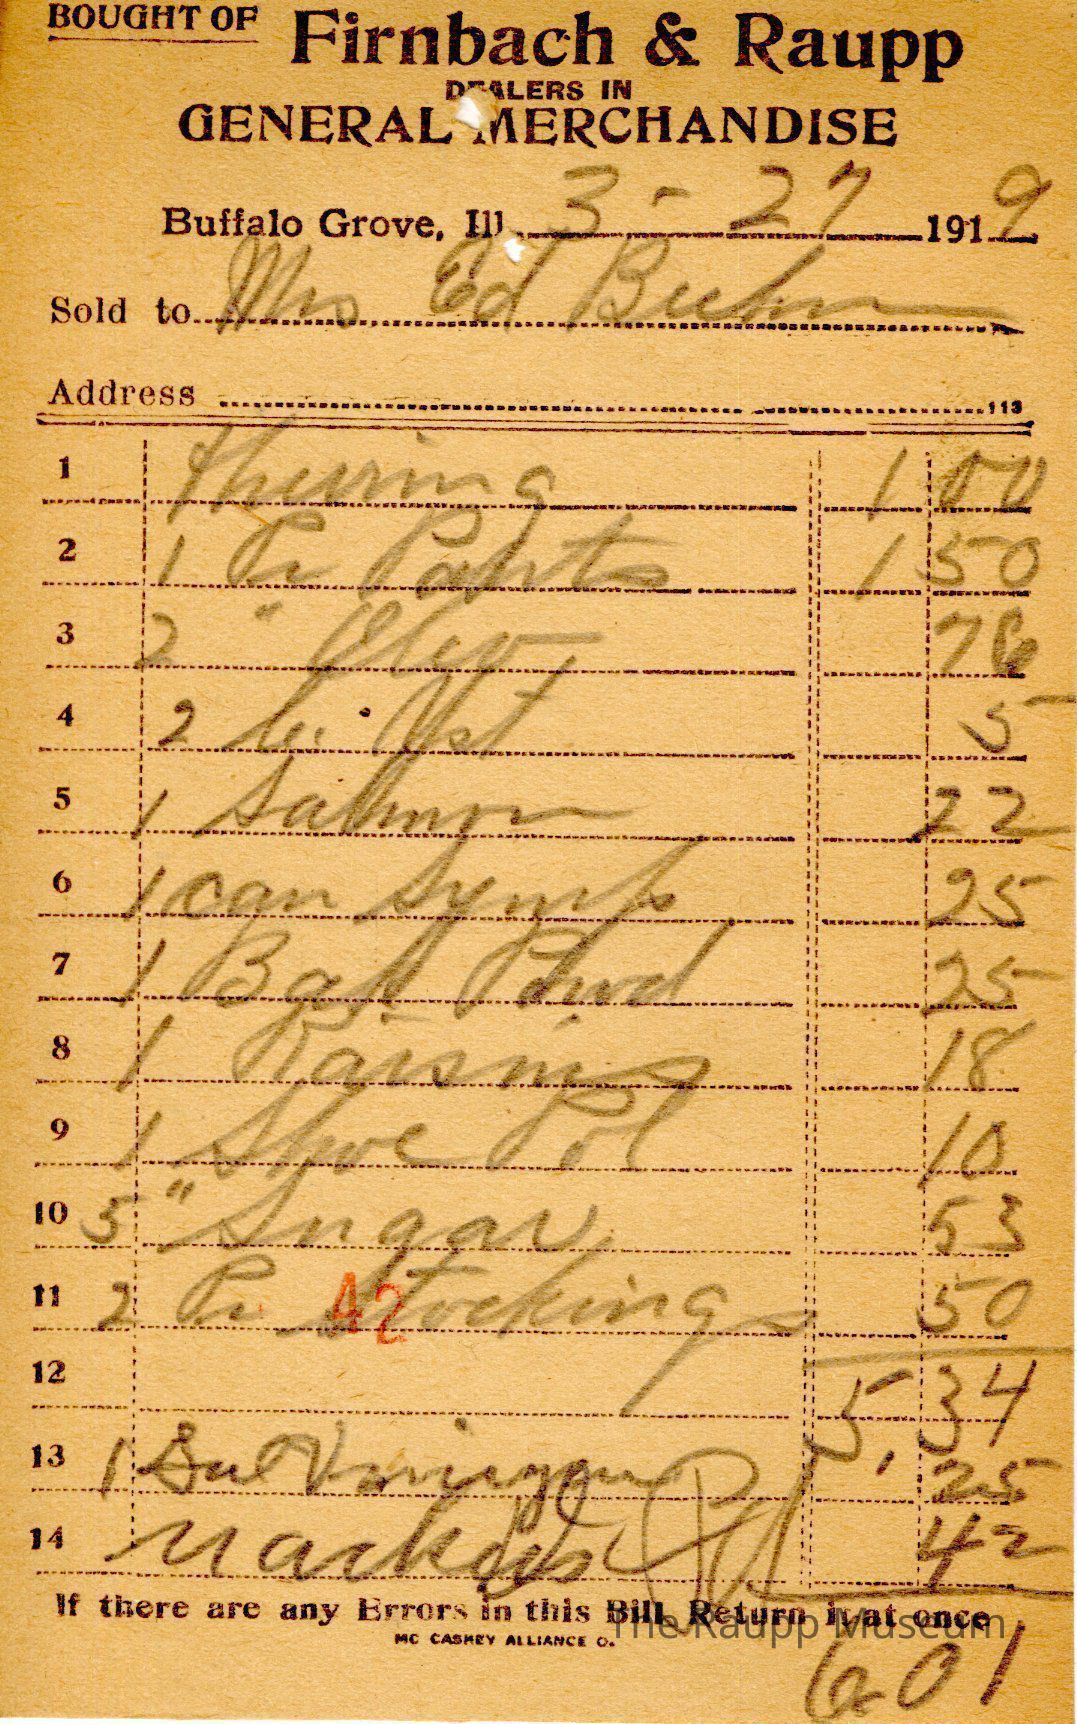 BOUGHT OF Firnbach & Raupp
DEALERS IN
GENERAL MERCHANDISE
Buffalo Grove, Ill. 3-27 1919
Sold to Mrs Ed Buhr
Address 113
1 1 00
2 1 Pr Pants 1 50
3 2 " 76
4 2 Yst 5
5 1 Salmon 22
6 1 can Syrup 25
7 1 Powd 25
8 1 Raisins 18
9 1 Shoe Pol 10
10 5 " Sugar 53
11 2 Pr Stockings 50
42
12 5.34
13 1 25
14 42
If there are any Errors in this Bill Return it at once
MC CASKEY ALLIANCE O.
The Raupp Museum
6 01